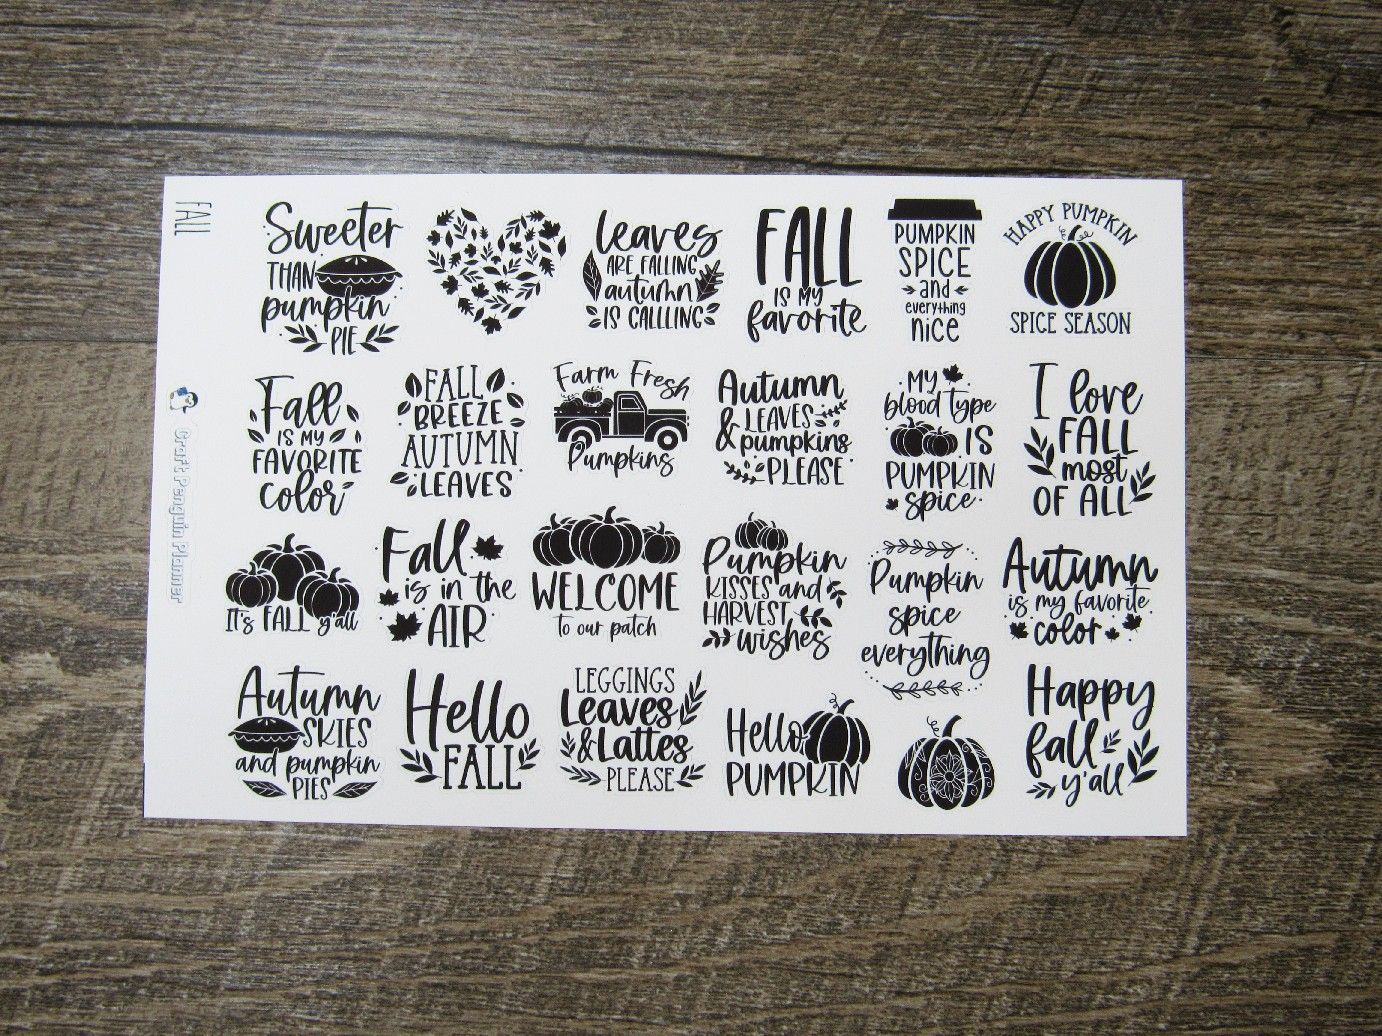 FALL
Craft Penguin Planner
Sweeter
THAN
pumpkin
PIE
leaves
ARE FALLING
autumn
IS CALLLING
FALL
IS MY
favorite
PUMPKIN
SPICE
and
everything
nice
HAPPY PUMPKIN
SPICE SEASON
Fall
IS MY
FAVORITE
color
FALL
BREEZE
AUTUMN
LEAVES
Farm Fresh
Pumpkins
Autumn
& LEAVES
pumpkins
PLEASE
MY
blood type
IS
PUMPKIN
spice
I love
FALL
most
OF ALL
It's FALL y'all
Fall
is in the
AIR
WELCOME
to our patch
Pumpkin
KISSES and
HARVEST
wishes
Pumpkin
spice
everything
Autumn
is my favorite
color
Autumn
SKIES
and pumpkin
PIES
Hello
FALL
LEGGINGS
Leaves
& Lattes
PLEASE
Hello
PUMPKIN
Happy
fall
y'all